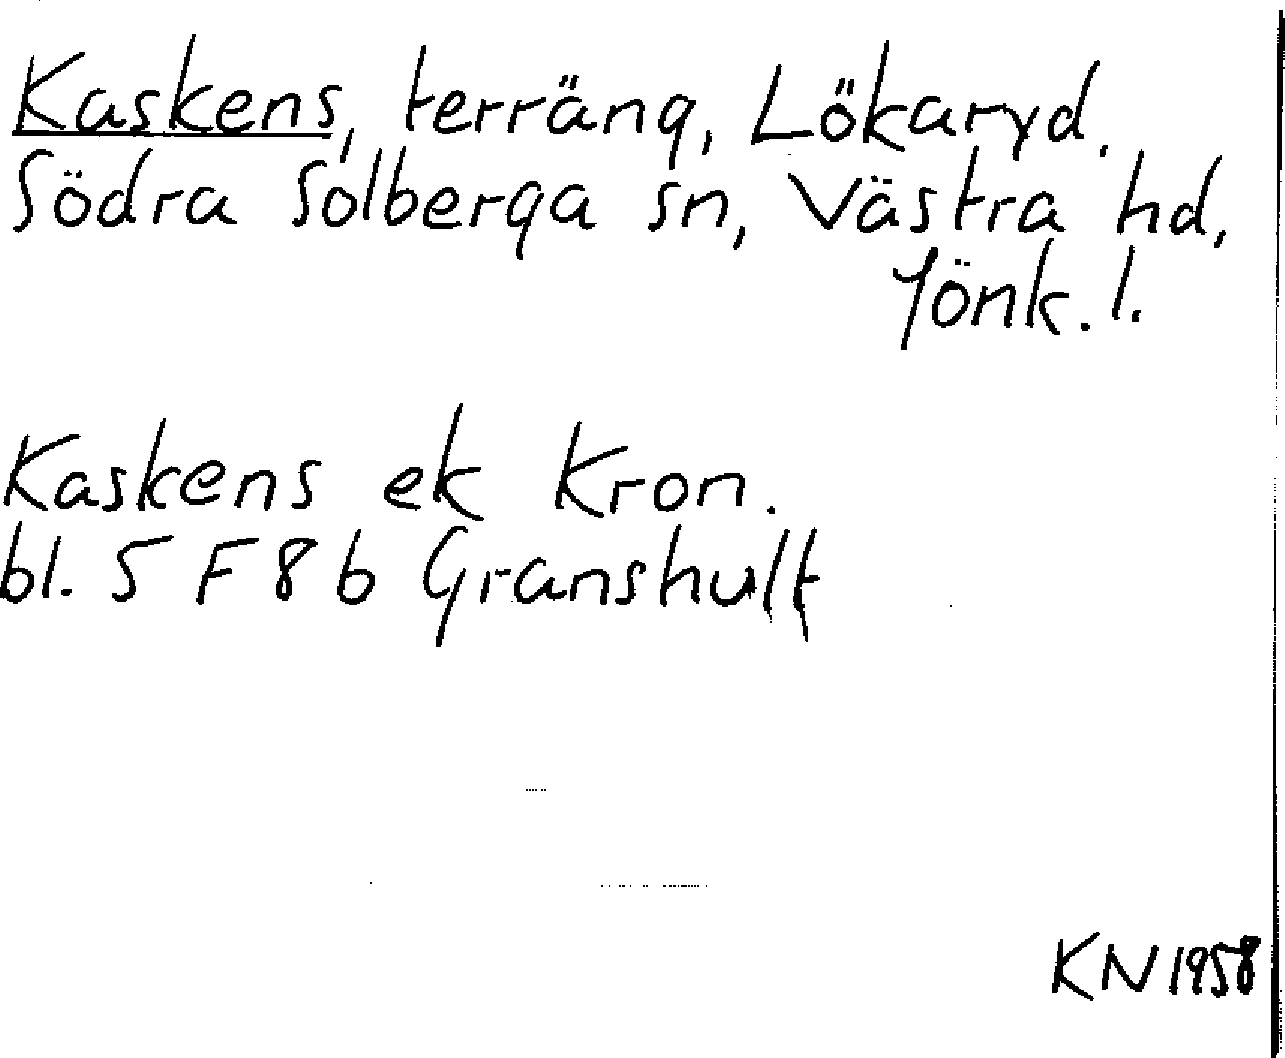 Kaskens, terräng, Lökaryd.
Södra Solberga sn, Västra hd,
Jönk. l.
Kaskens ek Kron.
bl. 5 F 8 b Granshult
KN 1958